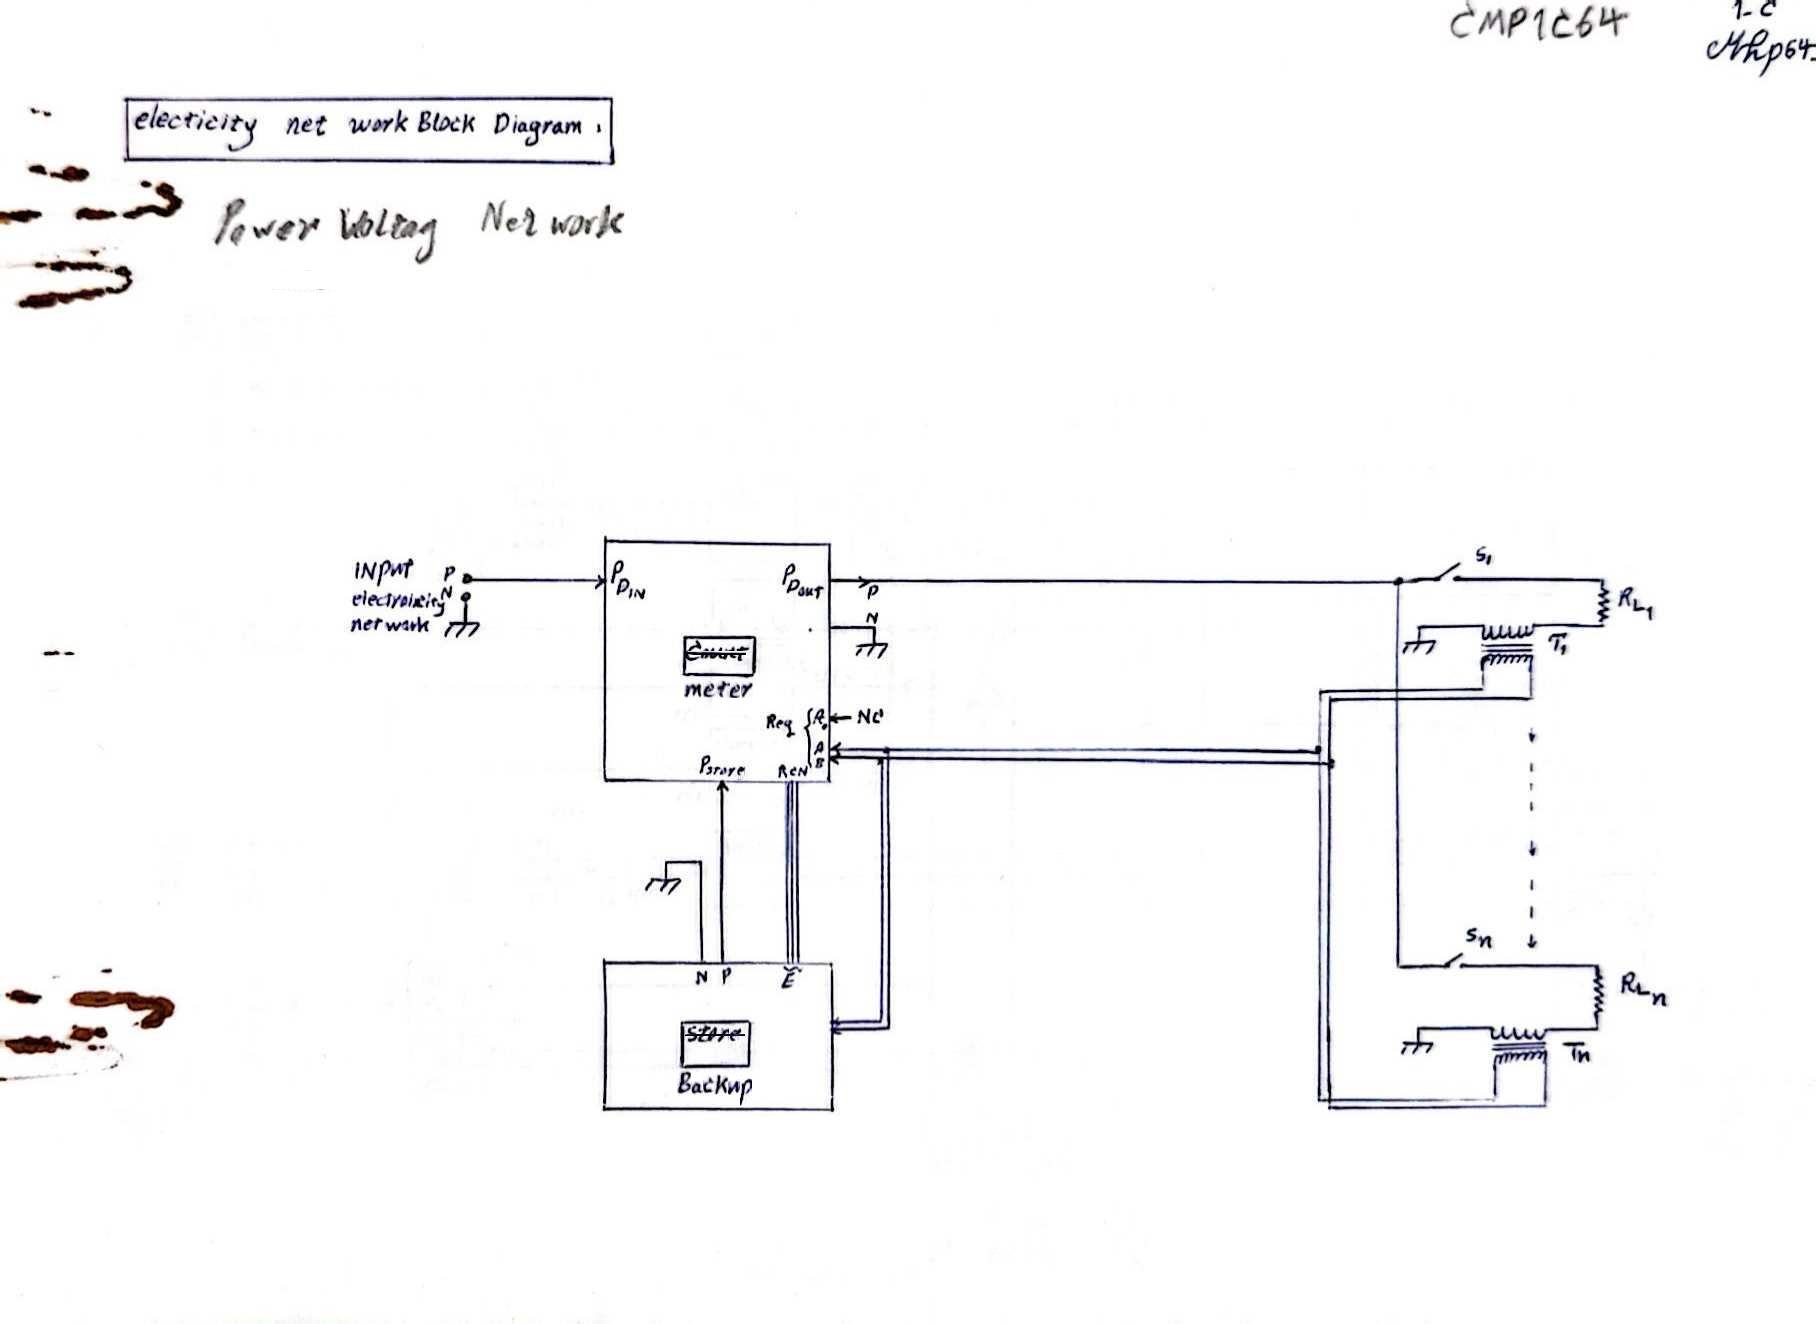 CMP1C64
1-C
Mhp64-
electicity net work Block Diagram.
Power Voltag Net work
INPUT P
electricity N
net work
PDIN
PDOUT
P
N
meter
Req
A0
NC
A
B
Pstore
RCN
N P E
Store
Backup
S1
RL1
T1
Sn
RLn
Tn